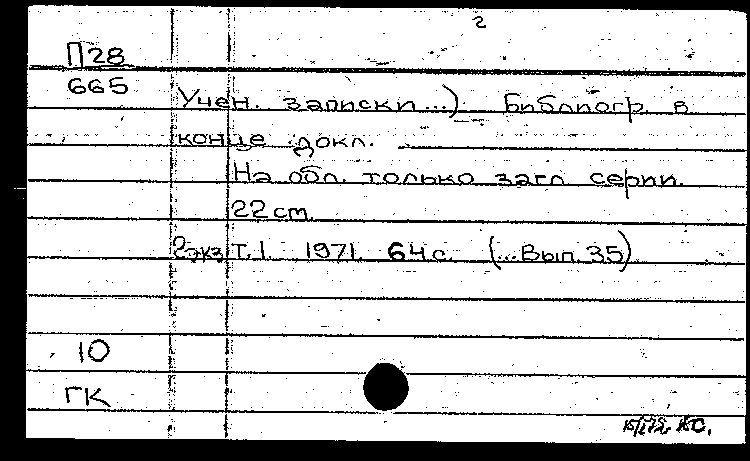 2
П28
665
Учен. записки...). Библиогр. в
конце докл.
На обл. только загл. серии.
22 cm.
2экз Т.1. 1971. 64 с. (...Вып. 35)
10
ГК